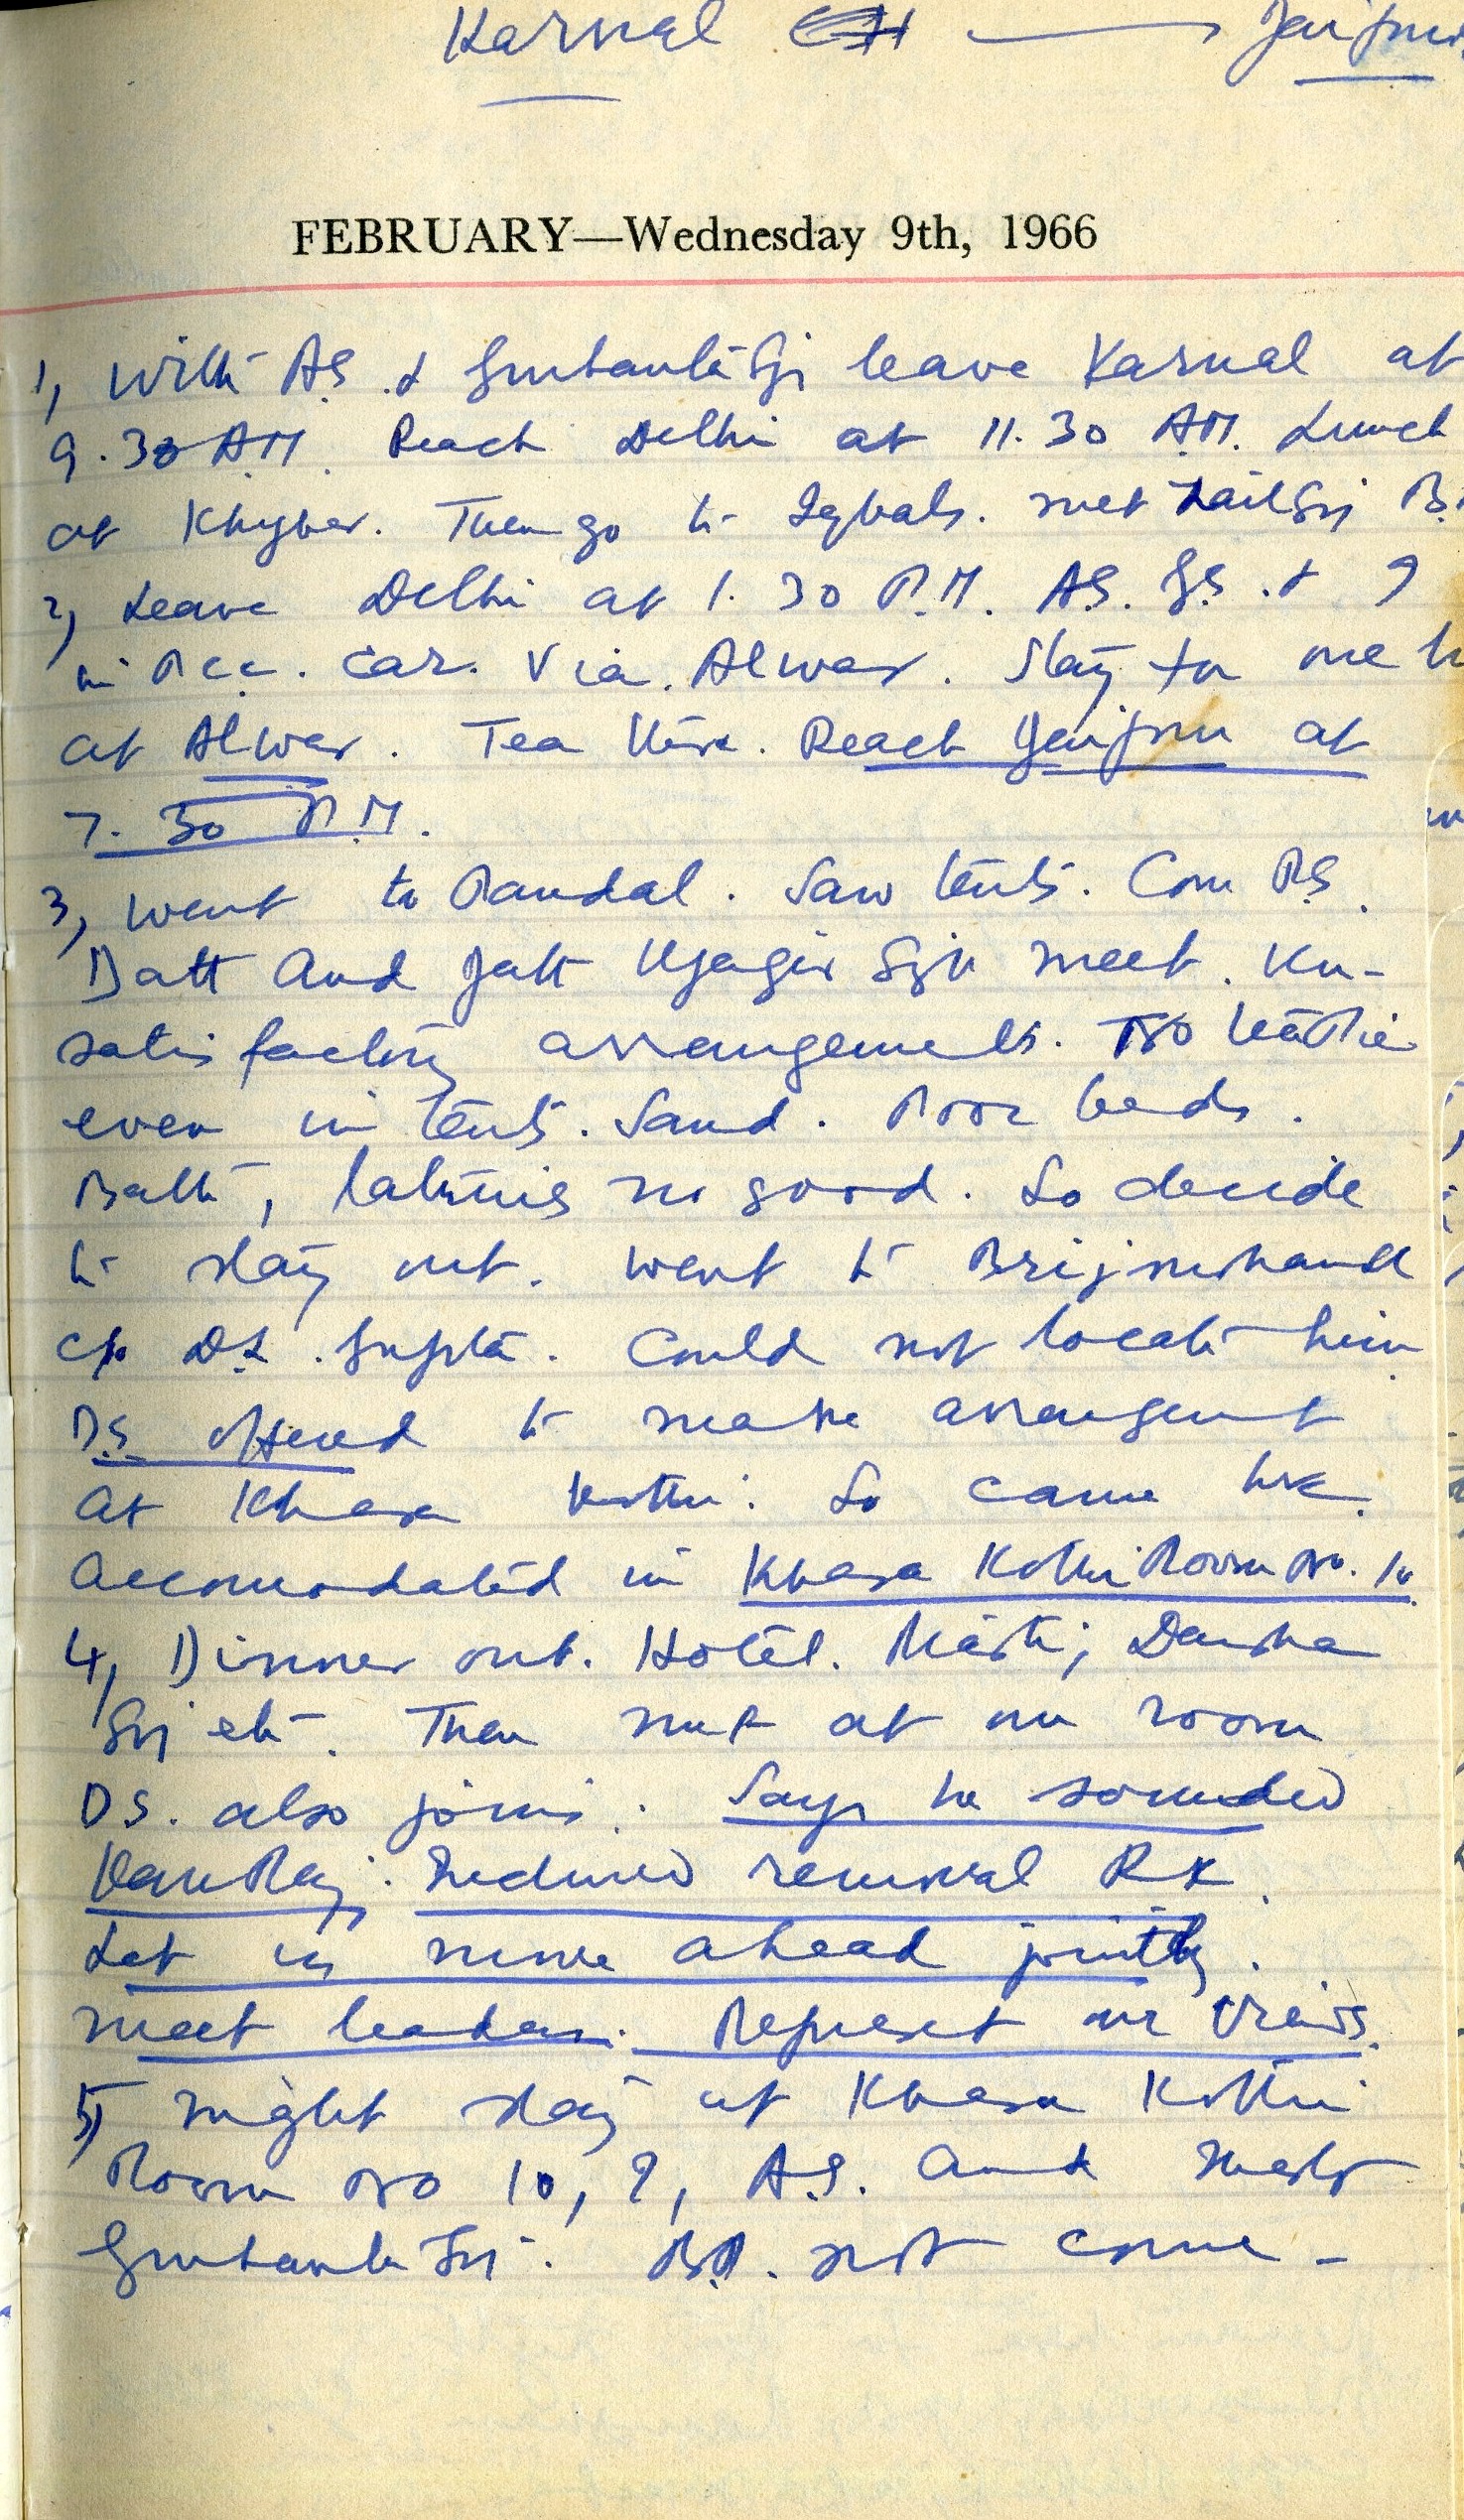 Karnal Jaipur
FEBRUARY—Wednesday 9th, 1966
1, With AS & Gurbanta Sgi leave Karnal at
9.30 AM. Reach Delhi at 11.30 AM. Lunch
at Khyber. Then go to Iqbals. met
2, Leave Delhi at 1.30 P.M. A.S. G.S. & I
in Pcc. Car. Via. Alwar. Stay for one
at Alwar. Tea there. Reach Jaipur at
7.30 P.M.
3, Went to Pandal. Saw tents. Com P.S.
Datt and Jatt Ujagir Sgh meet. Un-
satisfactory arrangements. No
even in tents. Sand. Poor beds.
Bath, latrines no good. So decide
to stay out. Went to Brijmohan
c/o D.L. Gupta. Could not locate him
D.S. offered to make arrangement
at Khasa Kothi. So came here.
accomodated in Khasa Kothi Room No. 10
4, Dinner out. Hotel. Darbara
etc. Then meet at our room
D.S. also joins. Says he sounded
Kamraj. Indured removal RK.
Let us move ahead jointly.
meet leaders. Represent our views.
5, Night stay at Khasa Kothi
Room No 10, I, A.S. and
Gurbanta Sgi. not come -